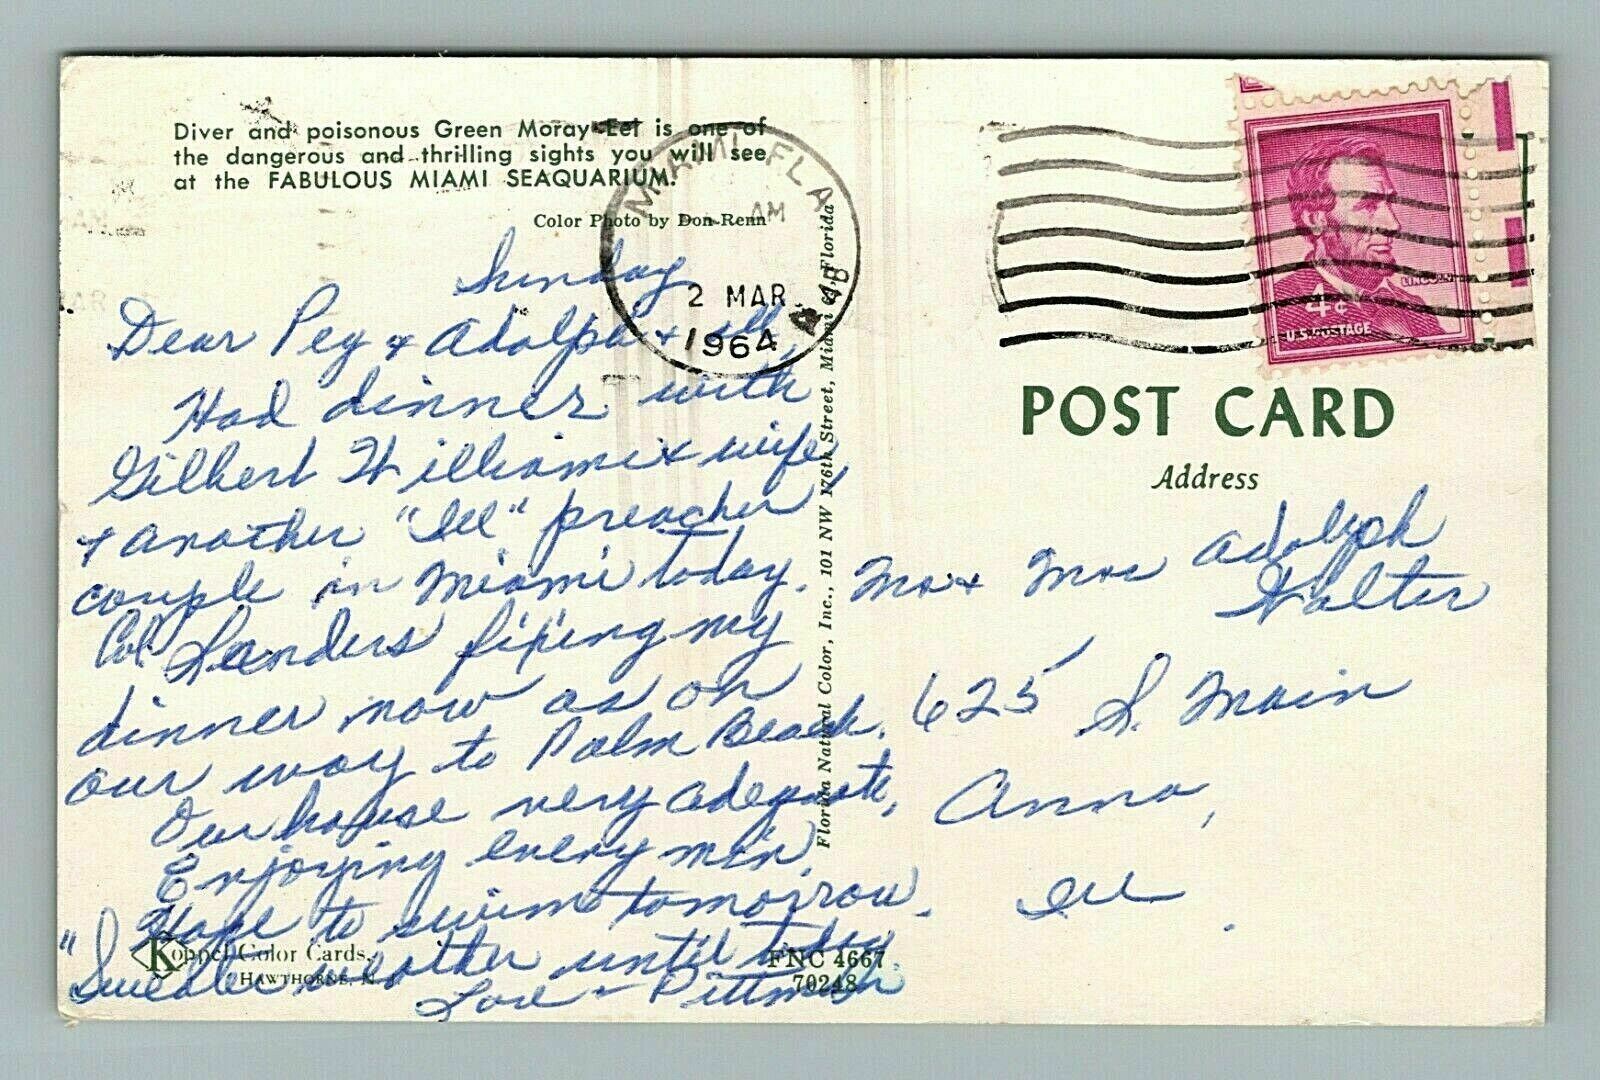 Diver and poisonous Green Moray Eel is one of
the dangerous and thrilling sights you will see
at the FABULOUS MIAMI SEAQUARIUM.
Color Photo by Don Renn
MIAMI, FLA
AM
2 MAR
1964
LINCOLN
4¢
U.S. POSTAGE
POST CARD
Address
Sunday
Dear Peg & Adolph & all,
Had dinner with
Gilbert Williams & wife,
& another "Ill" preacher
couple in Miami today.
Col Sanders fixing my
dinner now as on
our way to Palm Beach.
Our house very adequate,
Enjoying every min.
Hope to swim tomorrow.
"Sweater weather until today
Love - Pittman
Mr & Mrs Adolph
Walter
625 S. Main
Anna,
Ill.
Florida Natural Color, Inc., 101 NW 176th Street, Miami 69, Florida
Koppel Color Cards,
HAWTHORNE, N.
FNC 4667
70248